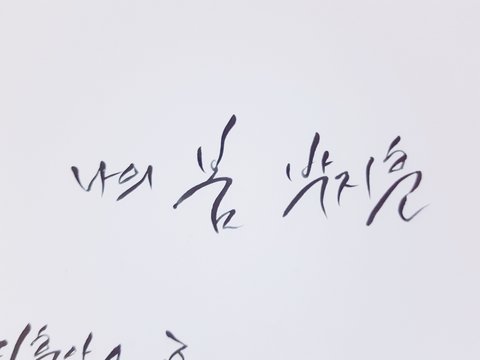 나의 봄 박지훈